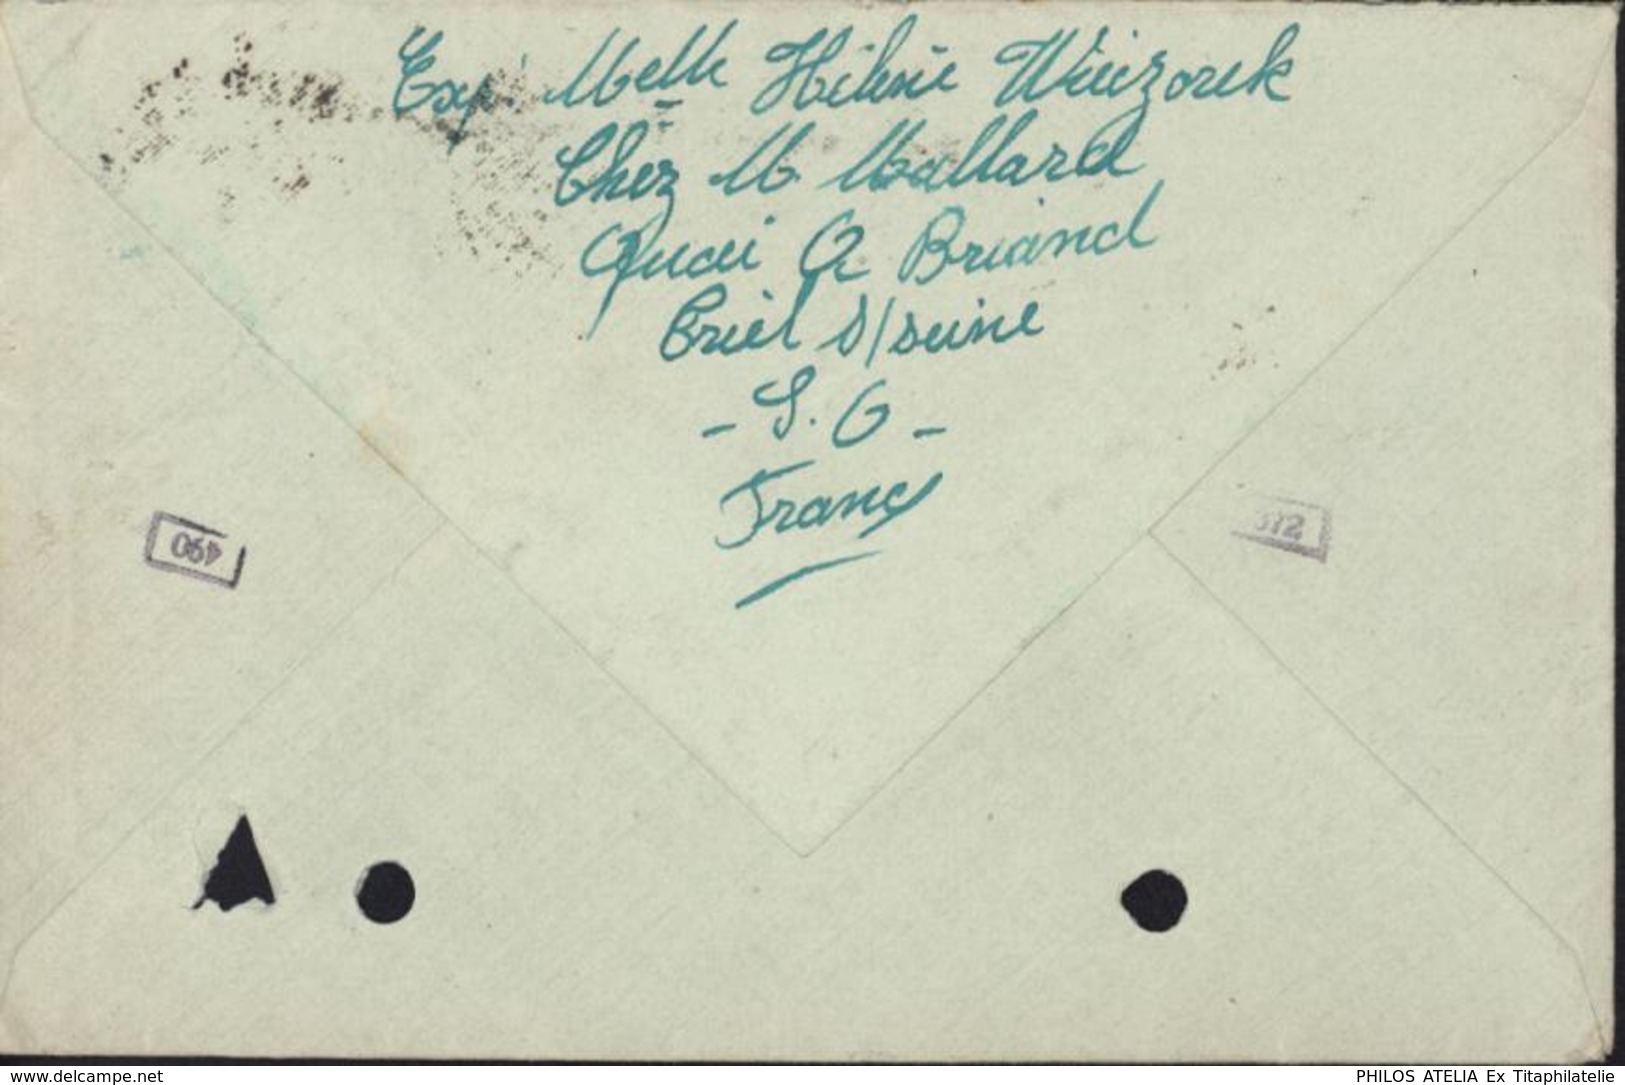 Exp: Melle Hélène Wieizorek
Chez M Mallard
Quai A Briand
Triel s/seine
- S. O -
France
490
372
www.delcampe.net
PHILOS ATELIA Ex Titaphilatelie